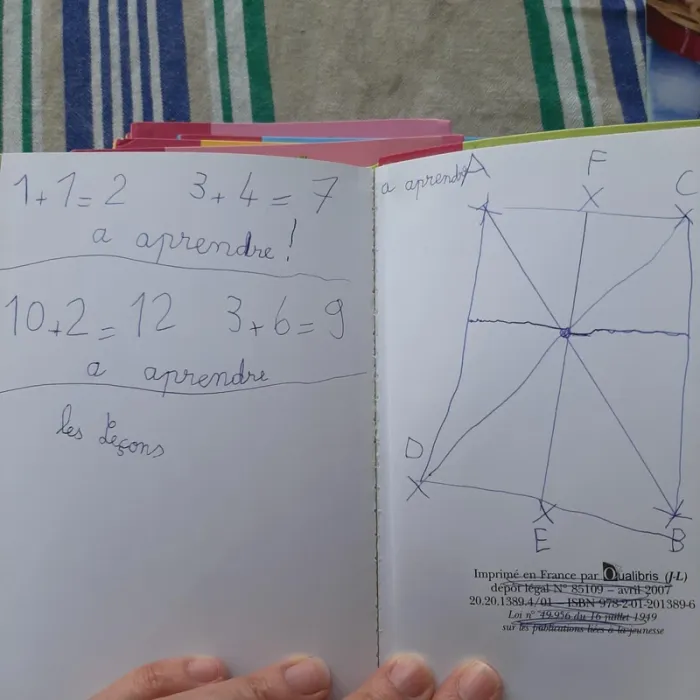 1+1=2 3+4=7
a aprendre!
10+2=12 3+6=9
a aprendre
les Leçons
a aprendre
A F C
D
E B
Imprimé en France par Qualibris (J-L)
dépôt légal N° 85109 – avril 2007
20.20.1389.4/01 – ISBN 978-2-01-201389-6
Loi n° 49.956 du 16 juillet 1949
sur les publications liées à la jeunesse